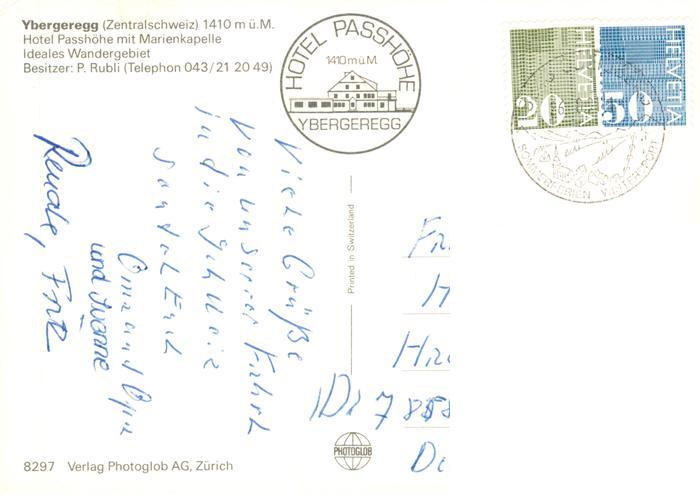 Ybergeregg (Zentralschweiz) 1410 m ü.M.
Hotel Passhöhe mit Marienkapelle
Ideales Wandergebiet
Besitzer: P. Rubli (Telephon 043/21 20 49)
HOTEL PASSHÖHE
1410 m ü M.
YBERGEREGG
HELVETIA
20
HELVETIA
50
SOMMERFERIEN WINTERSPORT
Viele Grüße
von unserer Fahrt
in die Schweiz
sendet Euch
Oma und Opa
und Ivonne
Renate, Fritz
Printed in Switzerland
Fr
H
Hir
D 7858
D
8297 Verlag Photoglob AG, Zürich
PHOTOGLOB